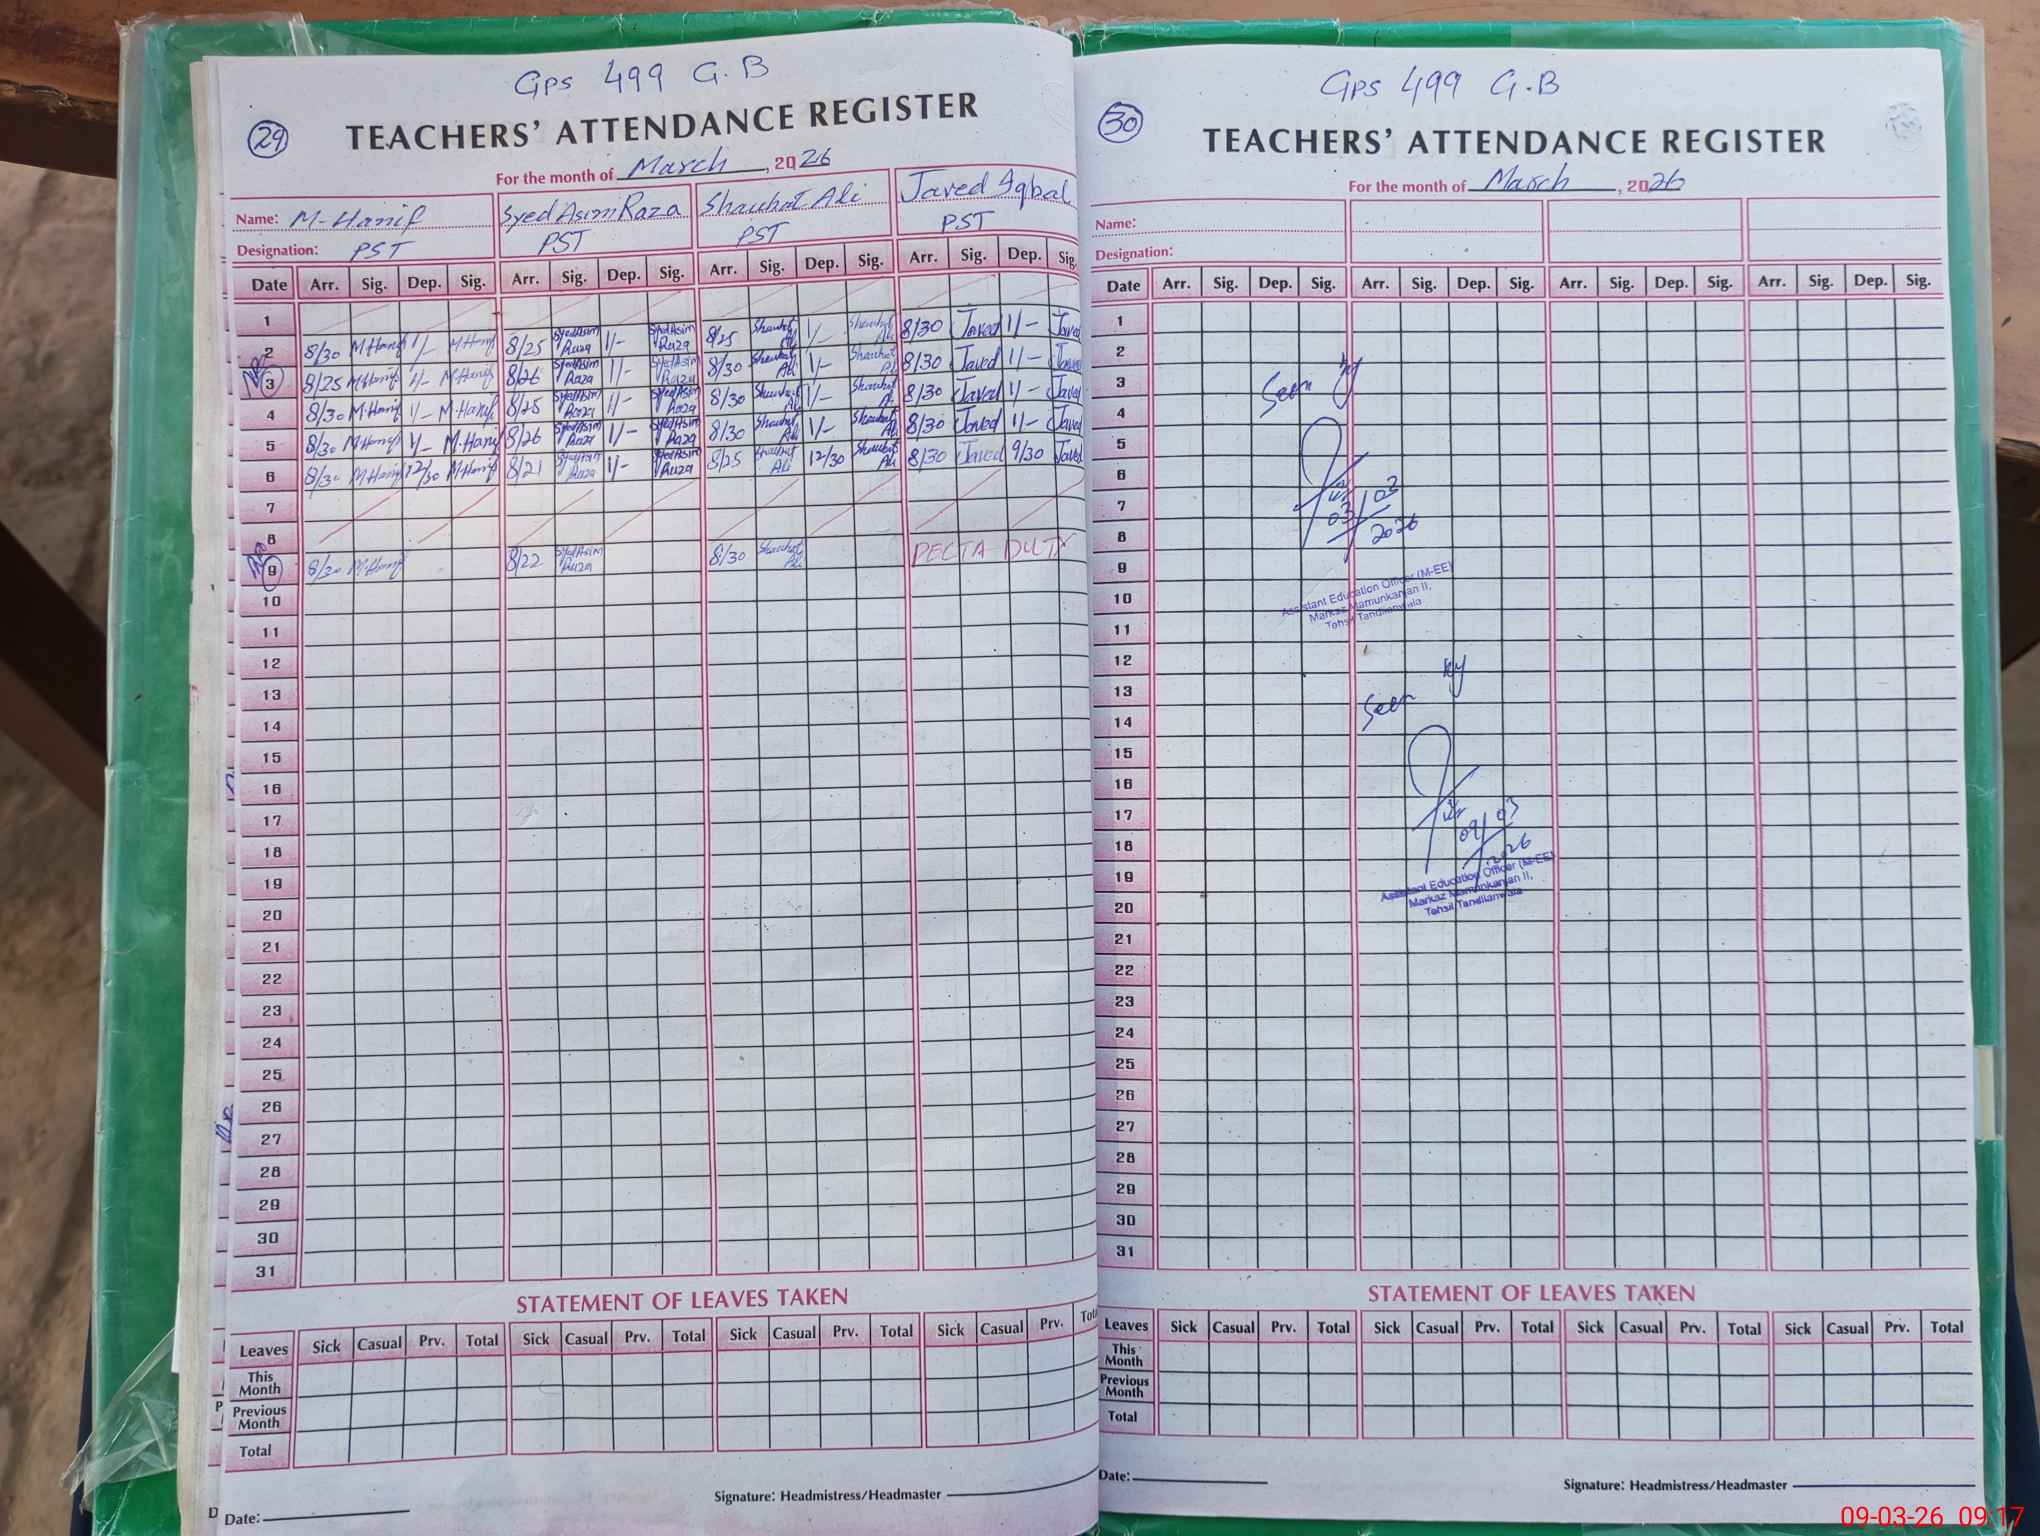 Gps 499 G.B
29
TEACHERS' ATTENDANCE REGISTER
For the month of March, 2026
Name: M-Hanif Syed Asim Raza Shauhat Ali Javed Iqbal
Designation: PST PST PST PST
Date Arr. Sig. Dep. Sig. Arr. Sig. Dep. Sig. Arr. Sig. Dep. Sig. Arr. Sig. Dep. Sig.
1
2 8/30 M.Hanif 1/- M.Hanif 8/25 Syed Asim Raza 1/- Syed Asim Raza 8/25 Shauhat Ali 1/- Shauhat Ali 8/30 Javed 1/- Javed
3 8/25 M.Hanif 1/- M.Hanif 8/26 Syed Asim Raza 1/- Syed Asim Raza 8/30 Shauhat Ali 1/- Shauhat Ali 8/30 Javed 1/- Javed
4 8/30 M.Hanif 1/- M.Hanif 8/25 Syed Asim Raza 1/- Syed Asim Raza 8/30 Shauhat Ali 1/- Shauhat Ali 8/30 Javed 1/- Javed
5 8/30 M.Hanif 1/- M.Hanif 8/26 Syed Asim Raza 1/- Syed Asim Raza 8/30 Shauhat Ali 1/- Shauhat Ali 8/30 Javed 1/- Javed
6 8/30 M.Hanif 12/30 M.Hanif 8/21 Syed Asim Raza 1/- Syed Asim Raza 8/25 Shauhat Ali 12/30 Shauhat Ali 8/30 Javed 9/30 Javed
7
8
9 8/30 M.Hanif 8/22 Syed Asim Raza 8/30 Shauhat Ali PECTA DUTY
10
11
12
13
14
15
16
17
18
19
20
21
22
23
24
25
26
27
28
29
30
31
STATEMENT OF LEAVES TAKEN
Leaves Sick Casual Prv. Total Sick Casual Prv. Total Sick Casual Prv. Total Sick Casual Prv. Total
This Month
Previous Month
Total
Signature: Headmistress/Headmaster
Date:
Gps 499 G.B
30
TEACHERS' ATTENDANCE REGISTER
For the month of March, 2026
Name:
Designation:
Date Arr. Sig. Dep. Sig. Arr. Sig. Dep. Sig. Arr. Sig. Dep. Sig. Arr. Sig. Dep. Sig.
1
2
3
4
5
6
7
8
9
10
11
12
13
14
15
16
17
18
19
20
21
22
23
24
25
26
27
28
29
30
31
Seen by
03/03
2026
Assistant Education Officer (M-EE)
Markaz Mamunkanjan II,
Tehsil Tandlianwala
Seen by
09/03
2026
Assistant Education Officer (M-EE)
Markaz Mamunkanjan II,
Tehsil Tandlianwala
STATEMENT OF LEAVES TAKEN
Leaves Sick Casual Prv. Total Sick Casual Prv. Total Sick Casual Prv. Total Sick Casual Prv. Total
This Month
Previous Month
Total
Date:
Signature: Headmistress/Headmaster
09-03-26 09:17